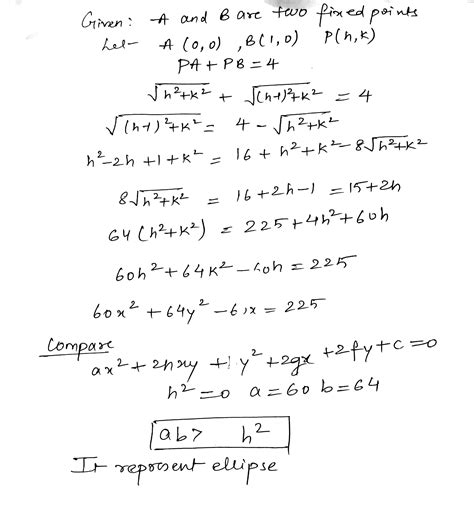 Given: A and B are two fixed points
Let A (0,0) , B(1,0) P(h,k)
PA + PB = 4
√h²+k² + √(h-1)²+k² = 4
√(h-1)²+k² = 4 - √h²+k²
h²-2h+1+k² = 16 + h²+k²-8√h²+k²
8√h²+k² = 16+2h-1 = 15+2h
64(h²+k²) = 225+4h²+60h
60h²+64k²-60h = 225
60x²+64y²-60x = 225
Compare
ax²+2hxy + y²+2gx+2fy+c=0
h²=0 a=60 b=64
ab> h²
It represent ellipse